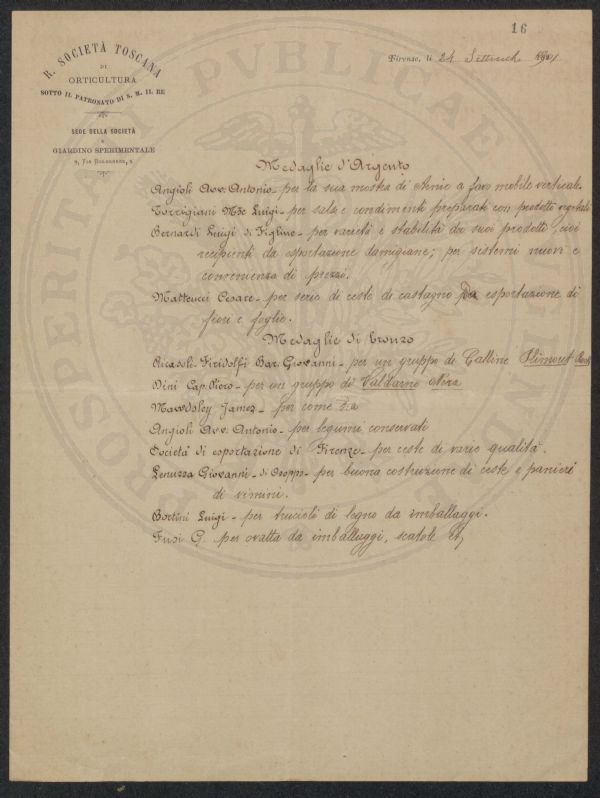 16
R. SOCIETÀ TOSCANA
DI
ORTICULTURA
SOTTO IL PATRONATO DI S. M. IL RE
SEDE DELLA SOCIETÀ
E
GIARDINO SPERIMENTALE
Firenze, li 24
PROSPERITATI PUBLICAE
Medaglie d'Argento
Angioli Avv. Antonio - per la sua mostra di Arnie a favo mobile verticale.
Torrigiani Mse Luigi - per salse e condimenti preparati con prodotti vegetali
Bernardi Luigi di Figline - per varietà e stabilità dei suoi prodotti, cioè
recipienti da esportazione damigiane; per sistemi nuovi e
convenienza di prezzo.
Matteucci Cesare - per serie di ceste di castagno da esportazione di
fiori e foglie.
Medaglie di bronzo
Ricasoli Firidolfi Bar. Giovanni - per un gruppo di Galline Plimout
Dini Cap. Piero - per un gruppo di Valdarno Nera
Mawdsley James - per come
Angioli Avv. Antonio - per legumi conservati
Società di esportazione di Firenze - per ceste di varie qualità.
Giovanni - di Osoppo - per buona costruzione di ceste e panieri
di vimini.
Bortini Luigi - per trucioli di legno da imballaggi.
G. per ovatta da imballaggi, scatole